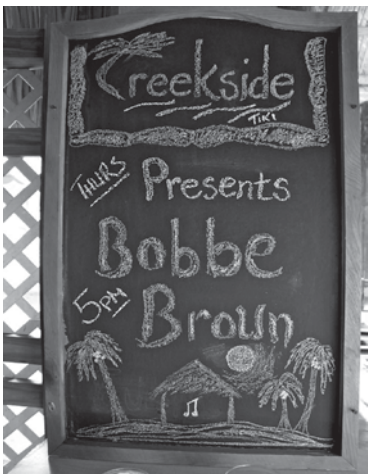 Creekside
TIKI
THURS
Presents
Bobbe
5PM
Broun